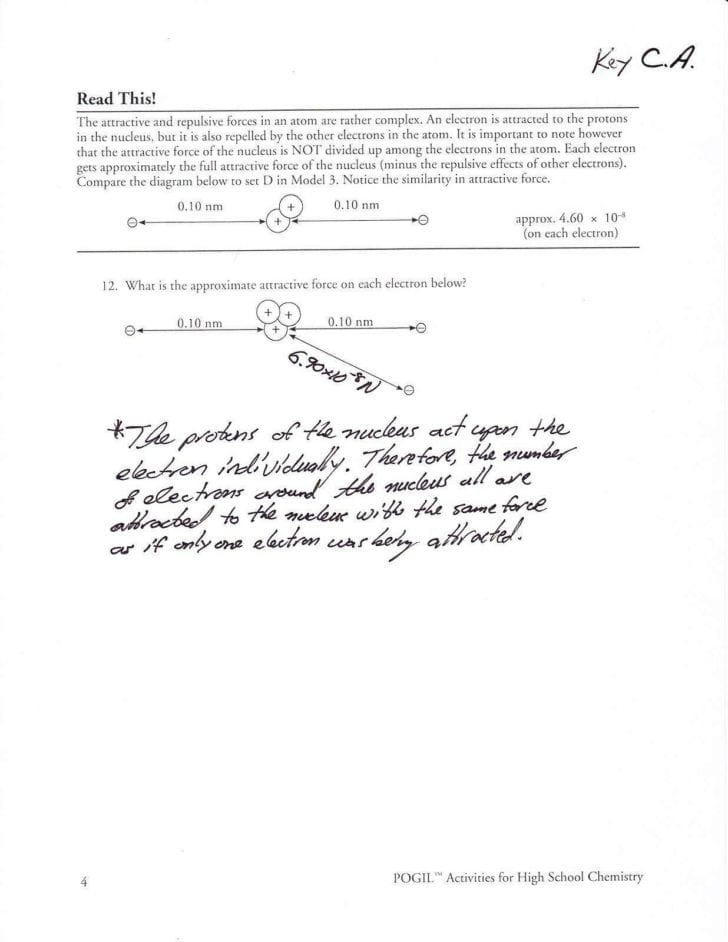 Key C.A.
Read This!
The attractive and repulsive forces in an atom are rather complex. An electron is attracted to the protons
in the nucleus, but it is also repelled by the other electrons in the atom. It is important to note however
that the attractive force of the nucleus is NOT divided up among the electrons in the atom. Each electron
gets approximately the full attractive force of the nucleus (minus the repulsive effects of other electrons).
Compare the diagram below to set D in Model 3. Notice the similarity in attractive force.
0.10 nm + 0.10 nm
⊖ + ⊖ approx. 4.60 × 10⁻⁸
(on each electron)
12. What is the approximate attractive force on each electron below?
+ +
⊖ 0.10 nm + 0.10 nm ⊖
6.90x10⁻⁸N
⊖
*The protons of the nucleus act upon the
electron individually. Therefore, the number
of electrons around the nucleus all are
attracted to the nucleus with the same force
as if only one electron was being attracted.
4
POGIL™ Activities for High School Chemistry